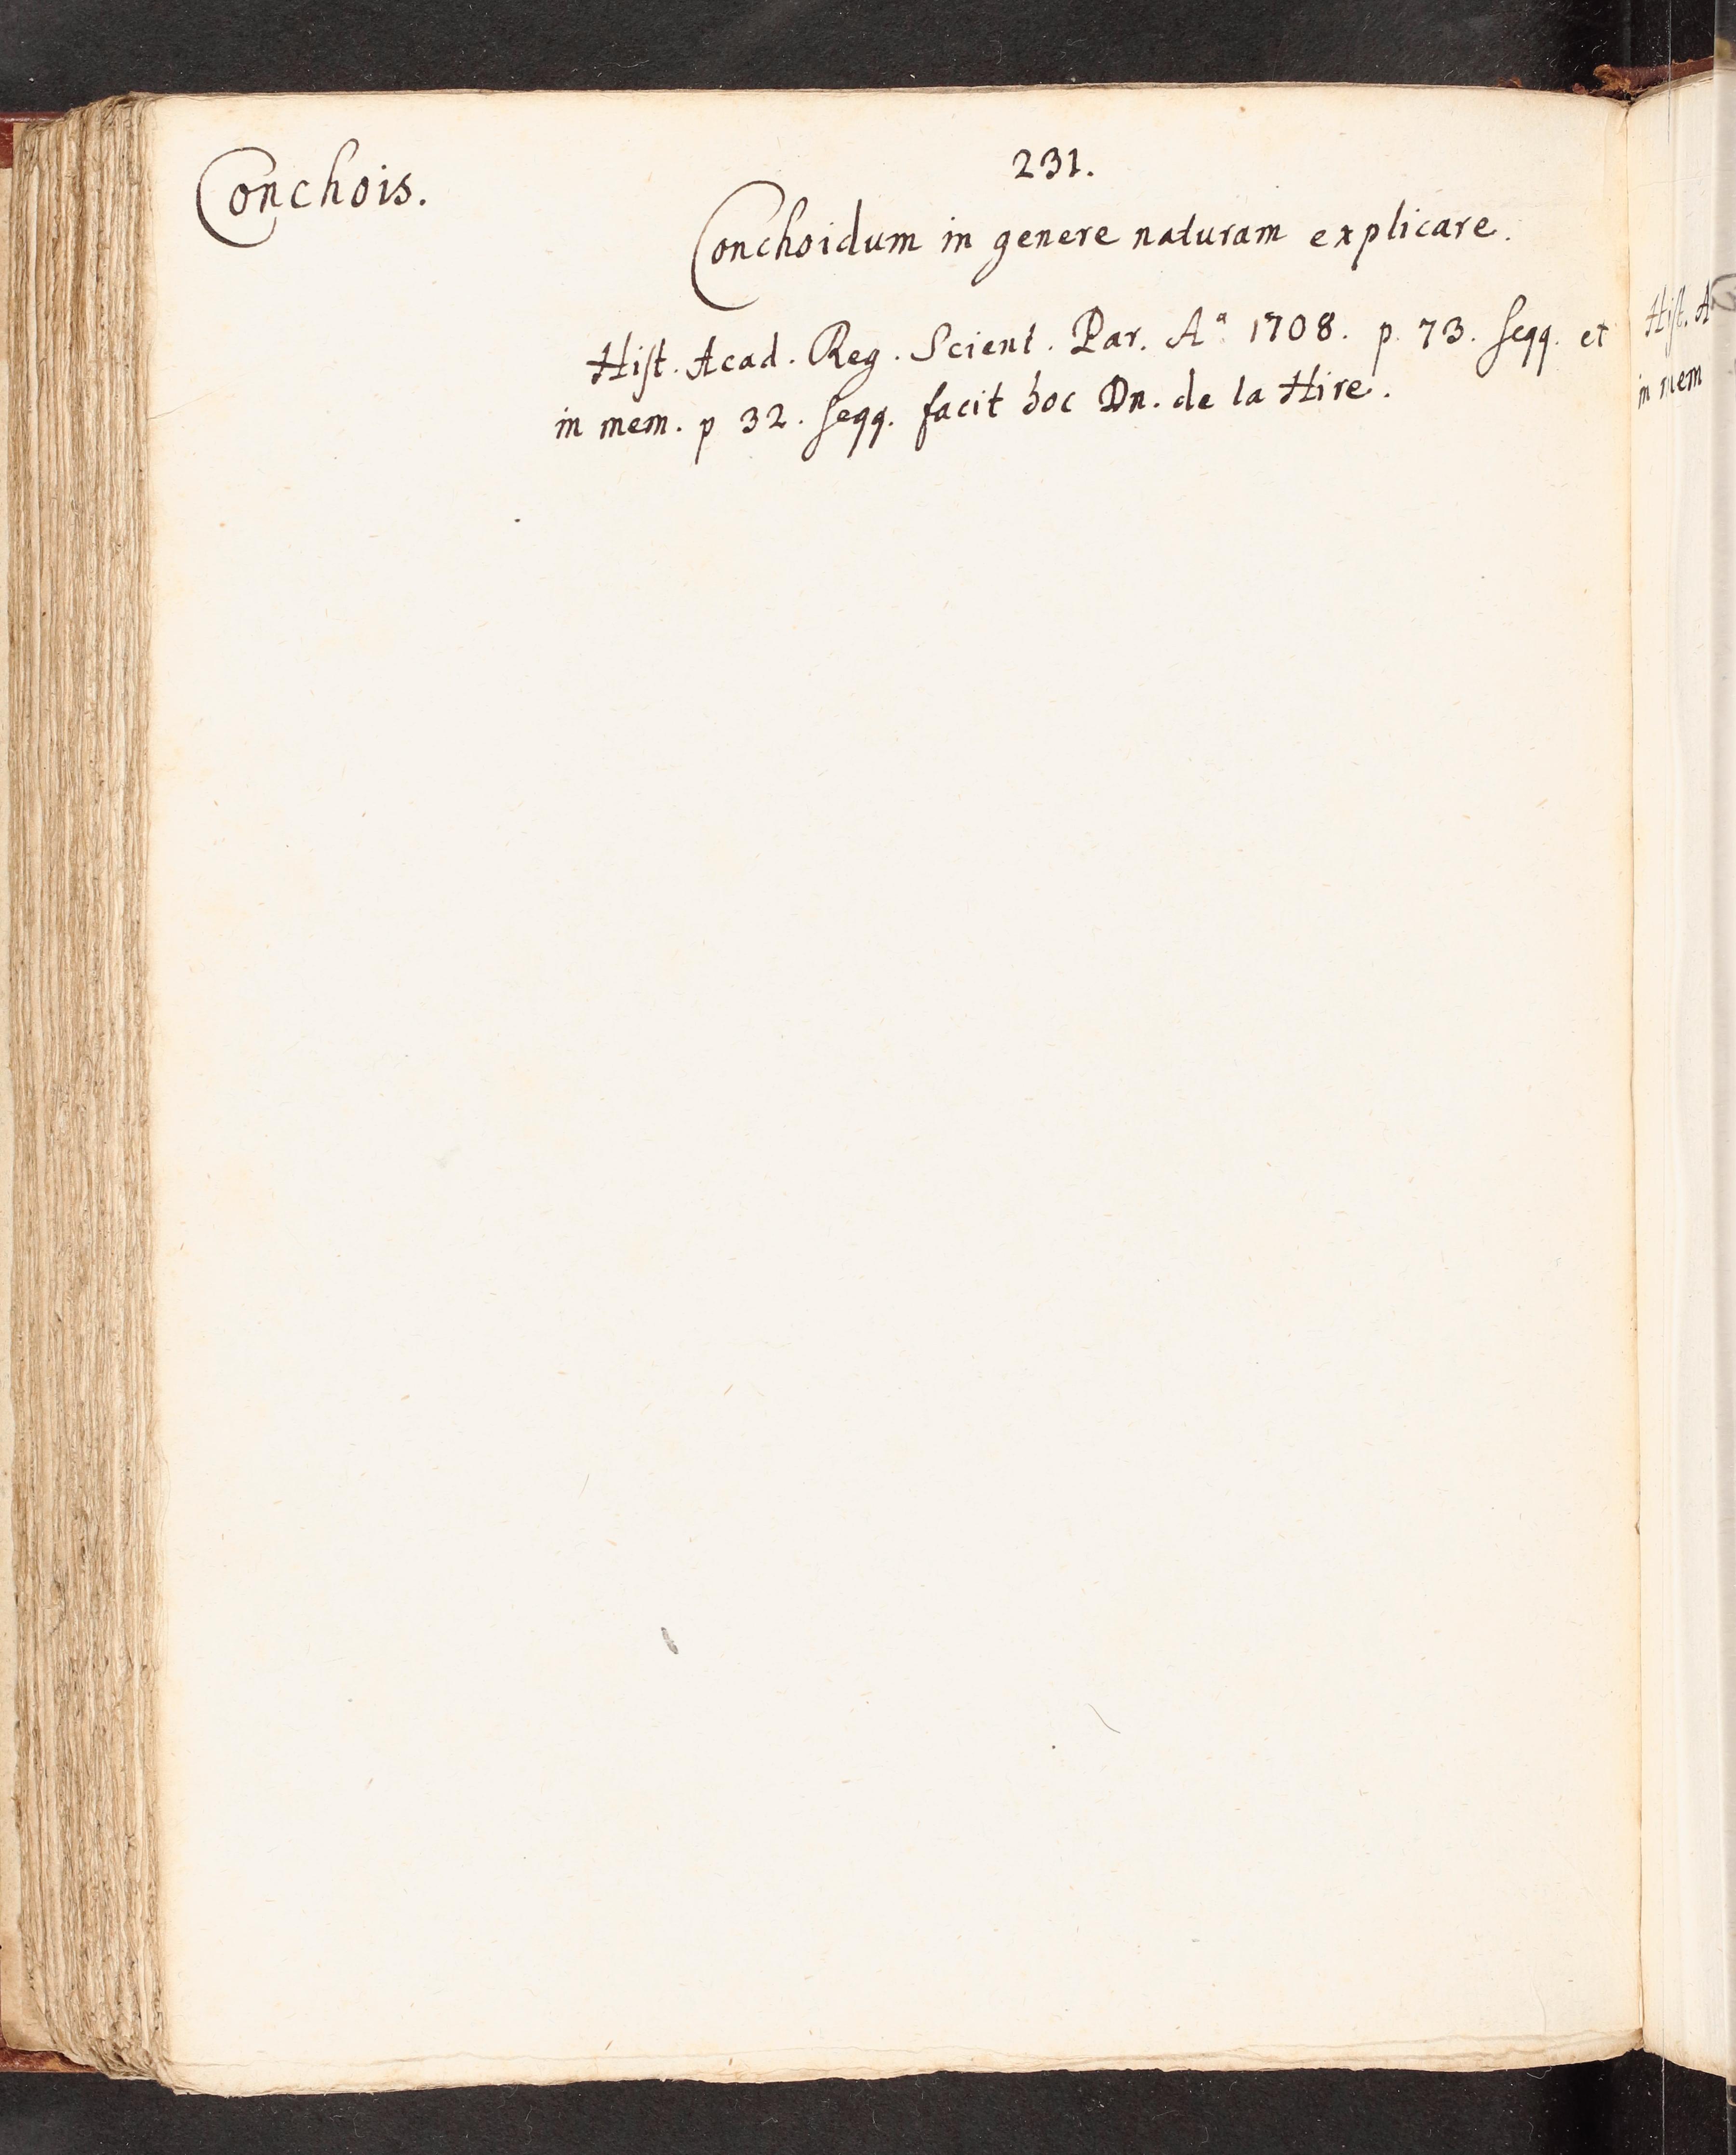 Conchois.
231.
Conchoidum in genere naturam explicare.
Hiſt. Acad. Reg. Scient. Par. Aª 1708. p. 73. ſeqq. et
in mem. p 32. ſeqq. facit hoc Dn. de la Hire.
Hiſt. A
in mem